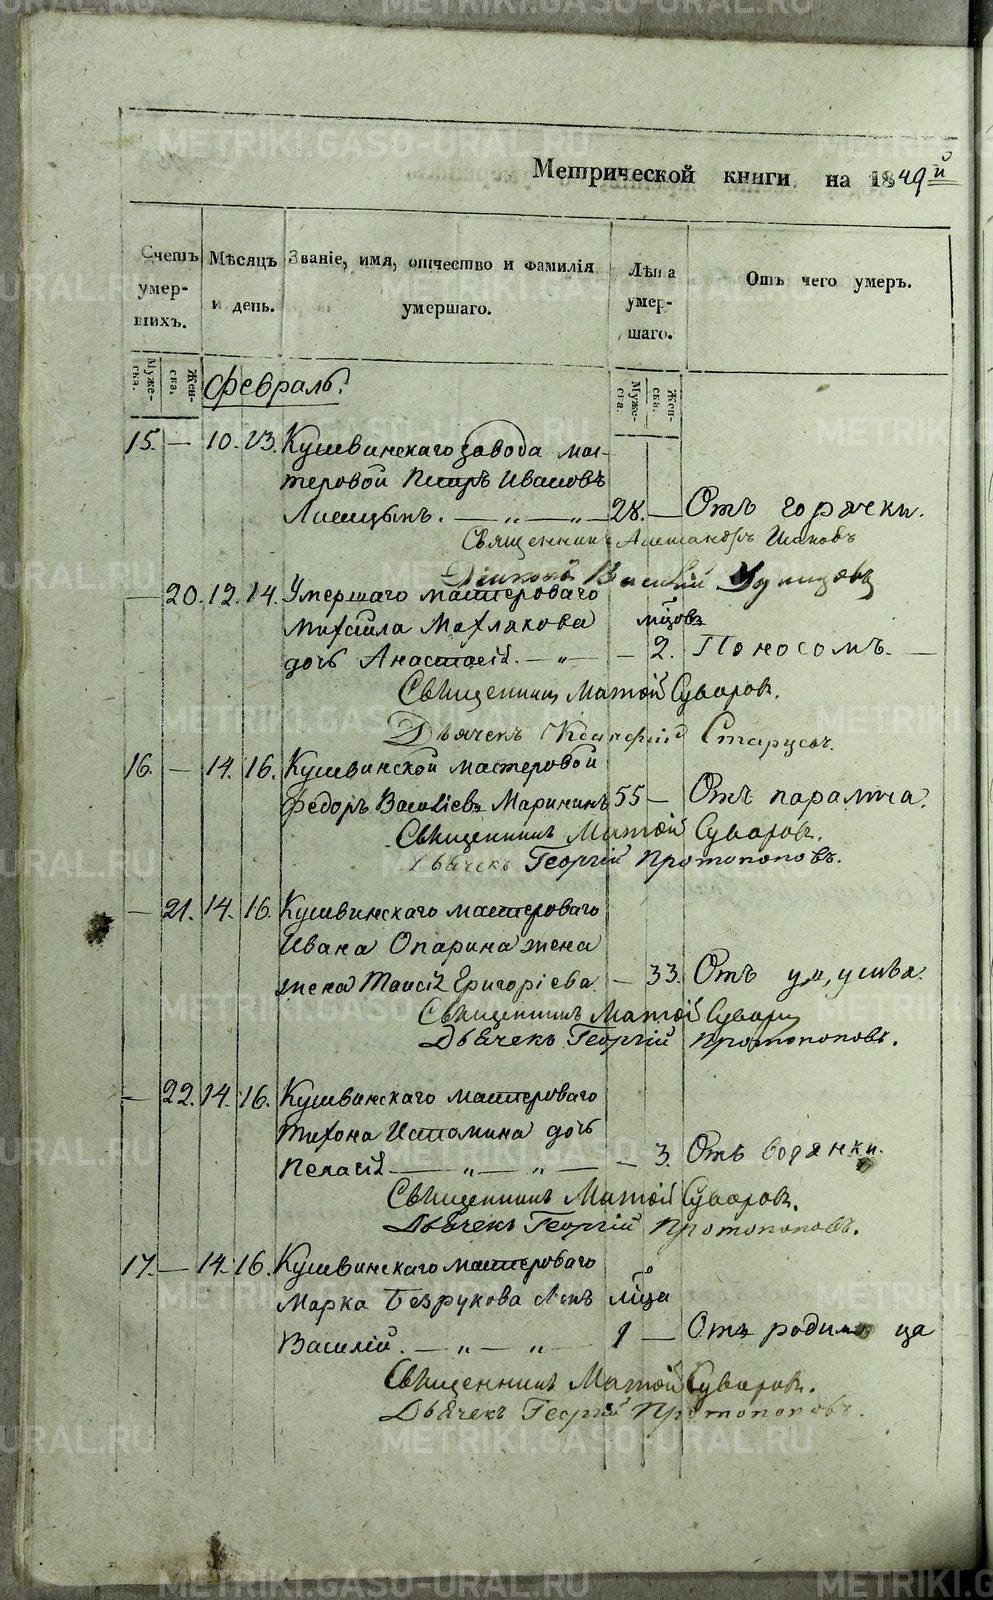 Метрической книги на 1849й
Счетъ умер- шихъ.
Мѣсяцъ и день.
Званіе, имя, отчество и фамилія умершаго.
Лѣта умер- шаго.
Отъ чего умеръ.
Муже- ска.
Жен- ска.
Муже- ска.
Жен- ска.
Февраль.
15. — 10. 13. Кушвинскаго завода мас-
теровой Петръ Ивановъ
Лисицынъ. — „ — „ — 28. — Отъ горячки.
Священникъ Александръ
Василій
— 20. 12. 14. Умершаго мастероваго
Михаила Махлякова мѣсяцовъ
дочь Анастасія. — „ — — 2. Поносомъ. —
Священникъ Матѳій Суворовъ.
Дьячекъ
16. — 14. 16. Кушвинской мастеровой
Федоръ Васильевъ Марининъ 55 — Отъ паралича.
Священникъ Матѳій Суворовъ.
Дьячекъ Георгій Протопоповъ.
— 21. 14. 16. Кушвинскаго мастероваго
Ивана Опарина жена
жена Таисія Григоріева. — 33. Отъ
Священникъ Матѳій Суворовъ
Дьячекъ Георгій Протопоповъ.
— 22. 14. 16. Кушвинскаго мастероваго
Тихона Истомина дочь
Пелагія — „ — „ — — 3. Отъ водянки.
Священникъ Матѳій Суворовъ.
Дьячекъ Георгій Протопоповъ.
17. — 14. 16. Кушвинскаго мастероваго
Марка Безрукова сынъ мѣсяца
Василій. — „ — „ — 1 — Отъ родимца
Священникъ Матѳій Суворовъ.
Дьячекъ Георгій Протопоповъ.
METRIKI.GASO-URAL.RU